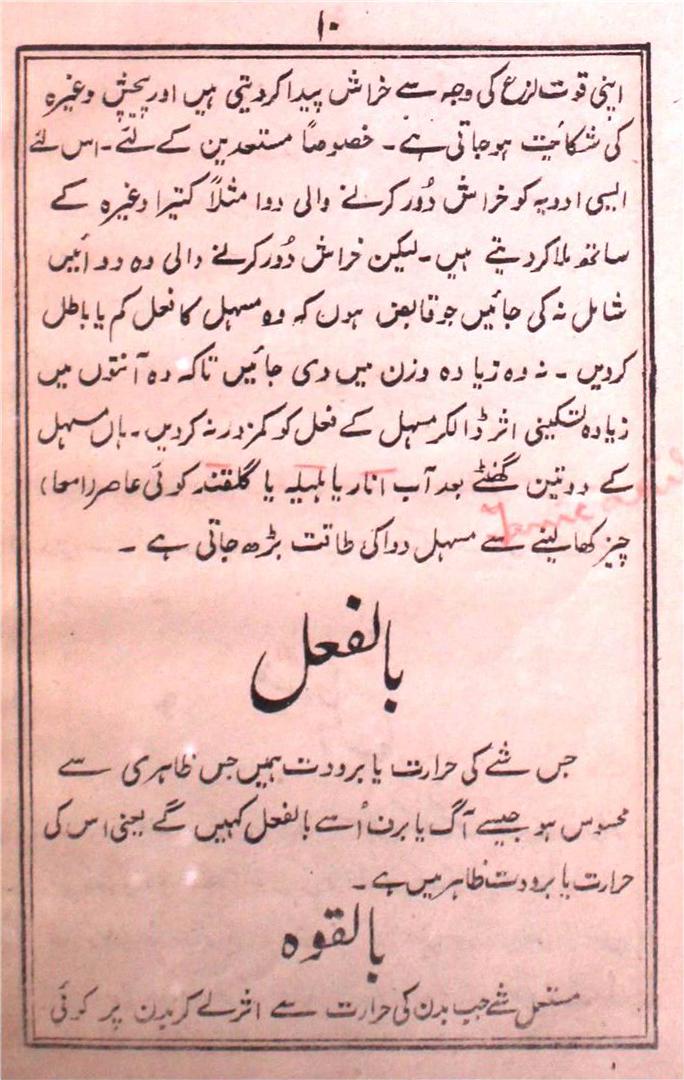 ۱۰
اپنی قوت لزع کی وجہ سے خراش پیدا کر دیتی ہیں اور پیچش وغیرہ
کی شکائت ہو جاتی ہے۔ خصوصاً مستعدین کے لئے۔ اس لئے
ایسی ادویہ کو خراش دُور کرنے والی دوا مثلاً کتیرا وغیرہ کے
ساتھ ملا کر دیتے ہیں۔ لیکن خراش دُور کرنے والی وہ دوائیں
شامل نہ کی جائیں جو قابض ہوں کہ وہ مسہل کا فعل کم یا باطل
کردیں۔ نہ وہ زیادہ وزن میں دی جائیں تاکہ وہ آنتوں میں
زیادہ تسکینی اثر ڈالکر مسہل کے فعل کو کمزور نہ کردیں۔ ہاں مسہل
کے دو تین گھنٹے بعد آب انار یا ہلیلہ یا گلقند کوئی عاصر (امعا)
چیز کھا لینے سے مسہل دوا کی طاقت بڑھ جاتی ہے۔
بالفعل
جس شے کی حرارت یا برودت ہمیں جس ظاہری سے
محسوس ہو جیسے آگ یا برف اُسے بالفعل کہیں گے یعنی اس کی
حرارت یا برودت ظاہر میں ہے۔
بالقوہ
مستعمل شے جب بدن کی حرارت سے اثر لے کر بدن پر کوئی